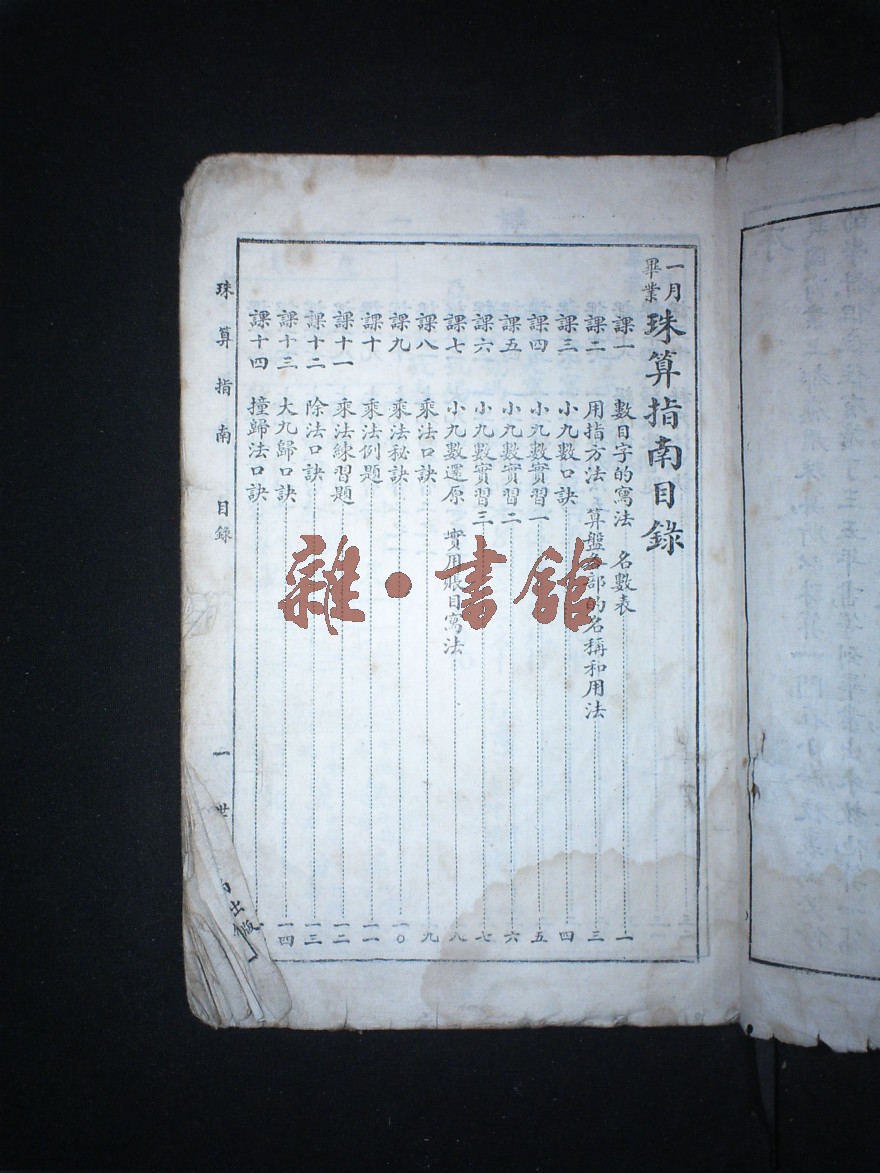 一月畢業 珠算指南目錄
課一 數目字的寫法 名數表 一
課二 用指方法 算盤各部的名稱和用法 三
課三 小九數口訣 四
課四 小九數實習一 五
課五 小九數實習二 六
課六 小九數實習三 七
課七 小九數還原 實用賬目寫法 八
課八 乘法口訣 九
課九 乘法秘訣 一〇
課十 乘法例題 一一
課十一 乘法練習題 一二
課十二 除法口訣 一三
課十三 大九歸口訣 一四
課十四 撞歸法口訣
珠算指南 目錄 一 世 出版
雜·書館